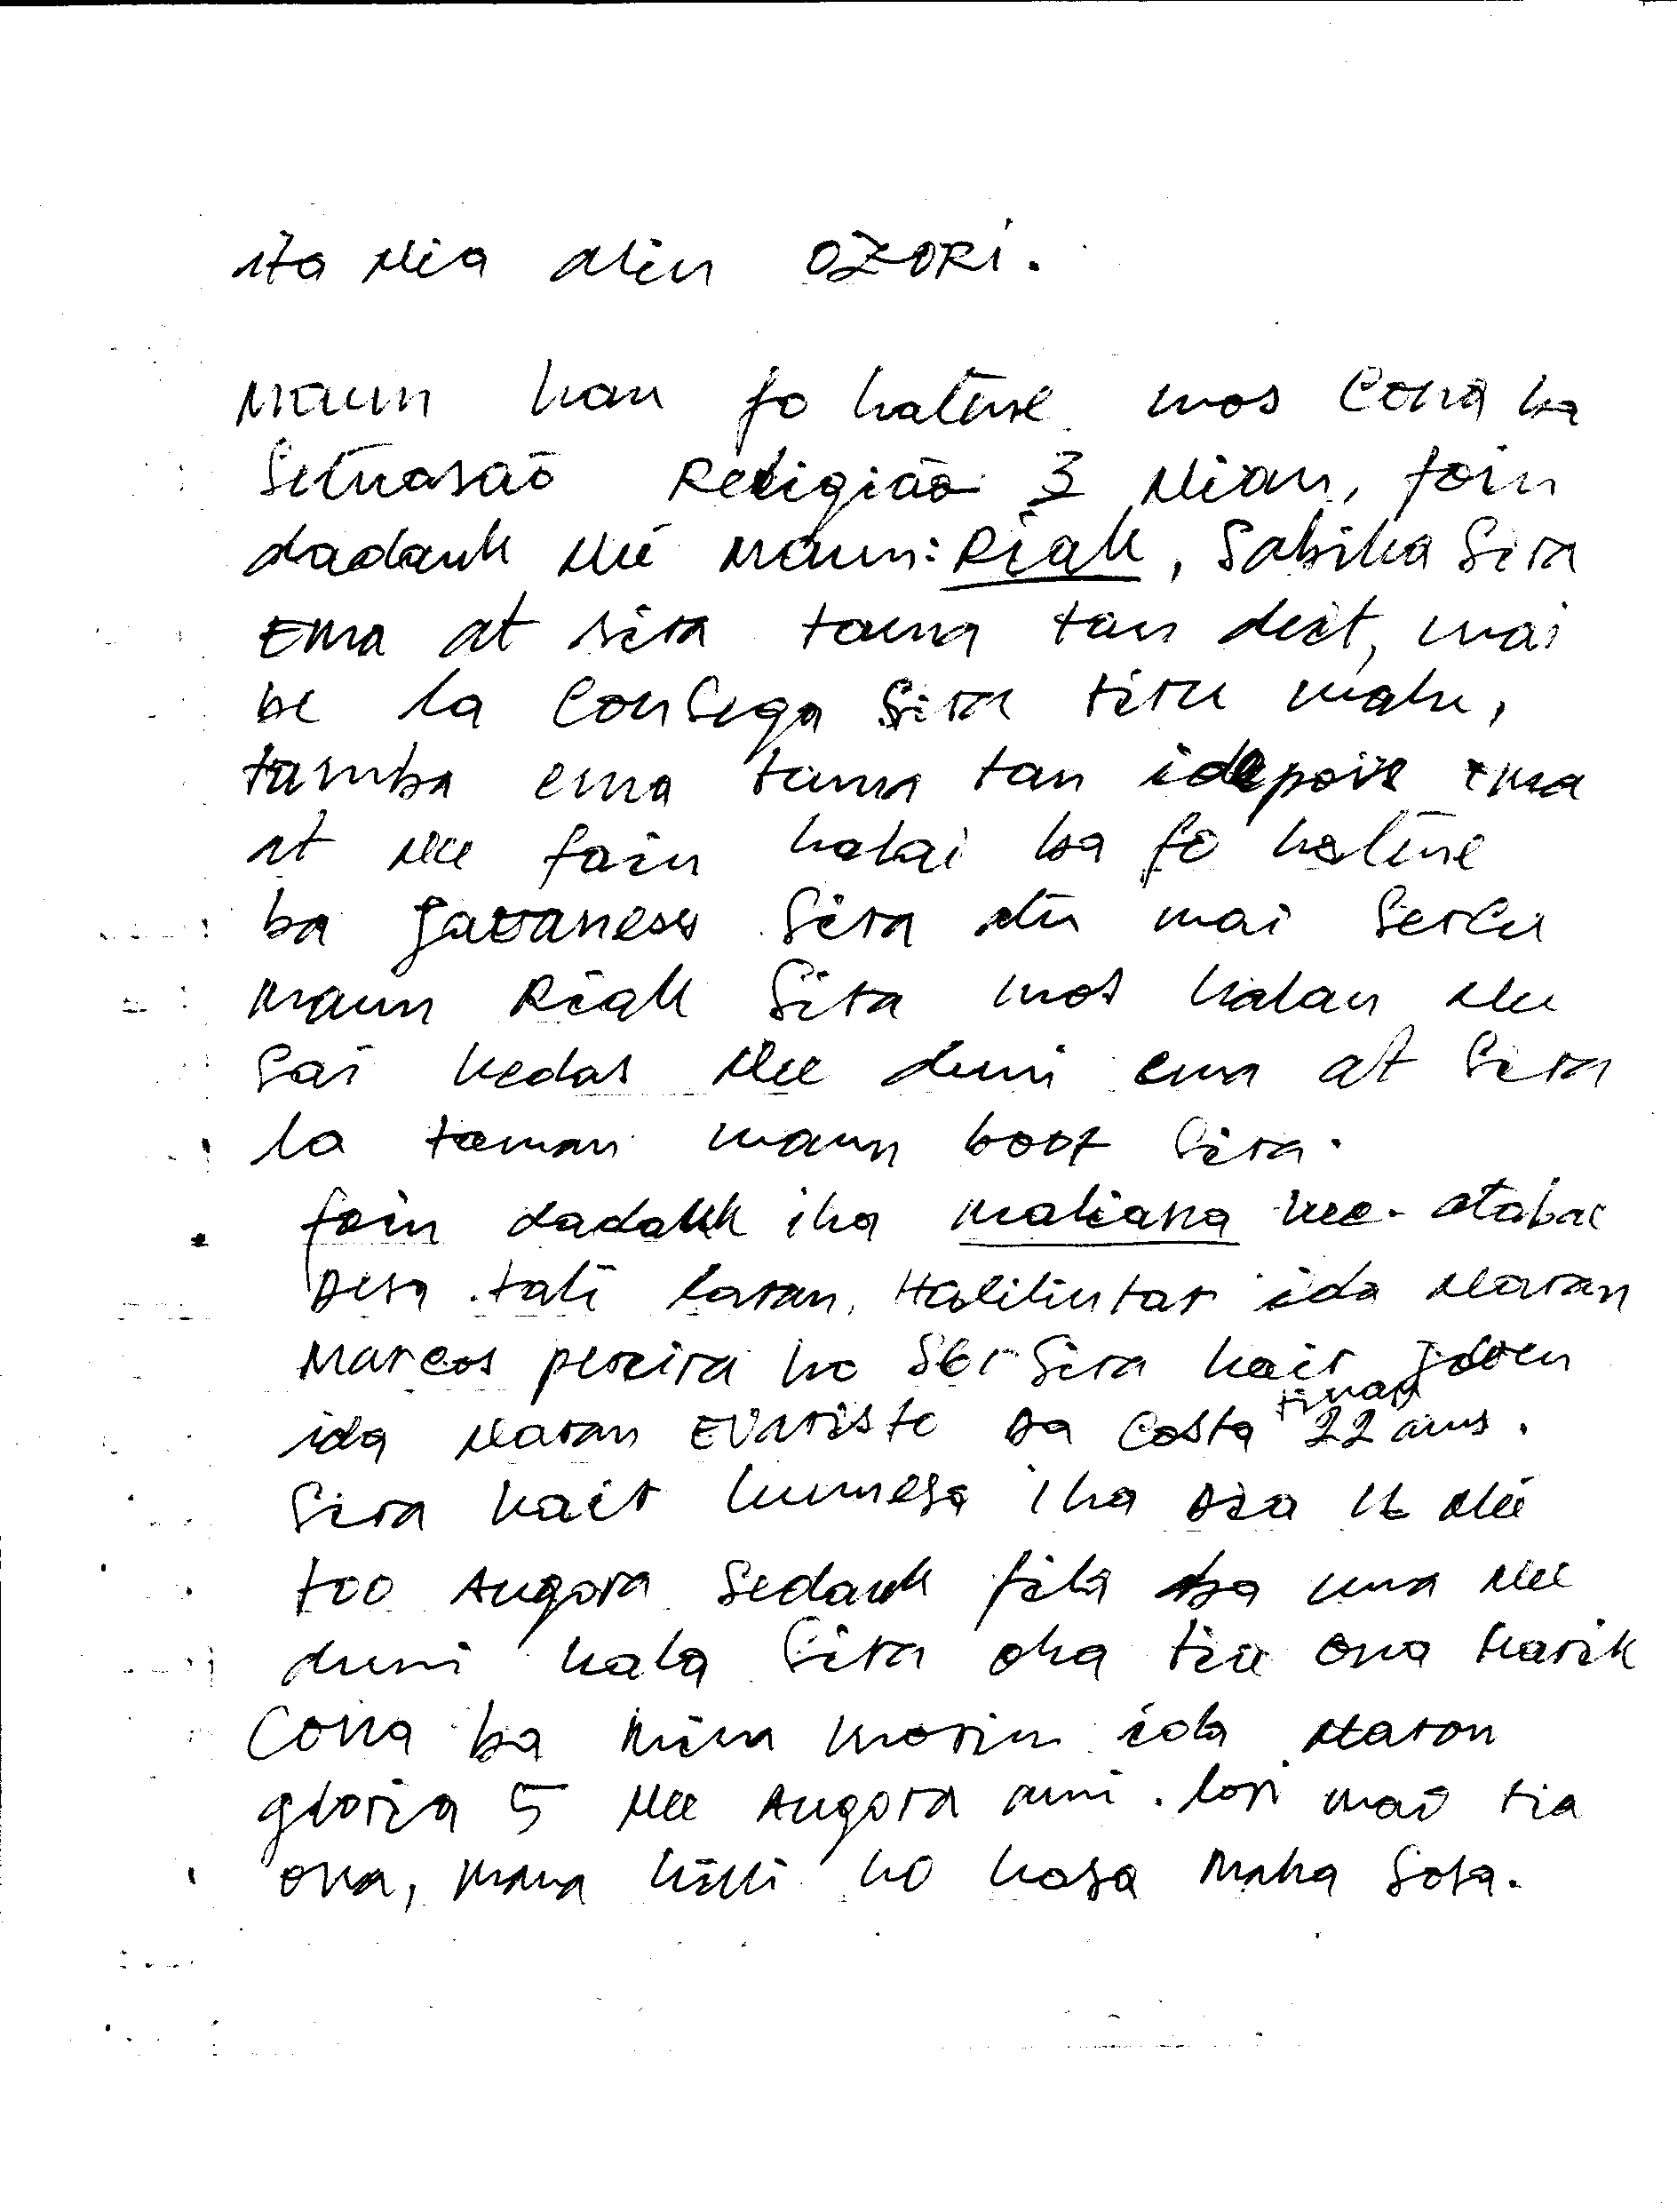 ita Nia alin OZORI.
Maun hau fo hatene mos Cona ba
Situasaõ Religiaõ 3 Nian, foin
dadauk Né Maun: Riak, Sabika Sira
Ema at sira tama tan deit, mai
be la Consega Sira tiru malu,
tamba ema tama tan idepois ema
at Nee foin halai ba fo hatene
ba Javaness Sira atu mai Sercu
Maun Riak Sira mos kalan Nee
Sai kedas Nee duni ema at Sira
la taman maun boot Sira.
foin dadauk iha Maliana Nee. Atabae
Desa tali laran, Halilintar ida Naran
Marcos pereira ho SGI Sira kair joven
ida Naran Evaristo Da Costa tinan 22 anus.
Sira kair humesa iha Dia 16 Né
too Angora Sedauk fila ba uma Nee
duni kala Sira oha tia ona karik
Cona ba Mina morin ida Naran
gloria 5 Nee Angora ami lori mai tia
ona, Mana kiki ho hasa Maka Sosa.